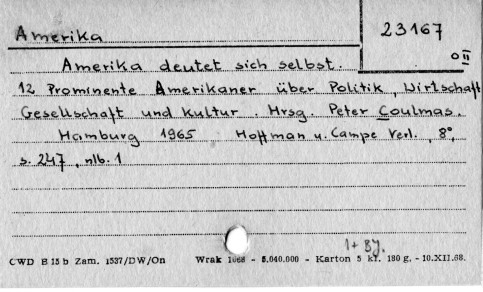 Amerika
23167
O II
Amerika deutet sich selbst.
12 Prominente Amerikaner über Politik, Wirtschaft
Gesellschaft und Kultur. Hrsg. Peter Coulmas.
Hamburg 1965 Hoffman u. Campe Verl., 8°,
s. 247, nlb. 1
1+ By.
CWD B 15 b Zam. 1537/DW/On Wrak 1068 - 5.040.000 - Karton 5 kl. 180 g. - 10.XII.68.